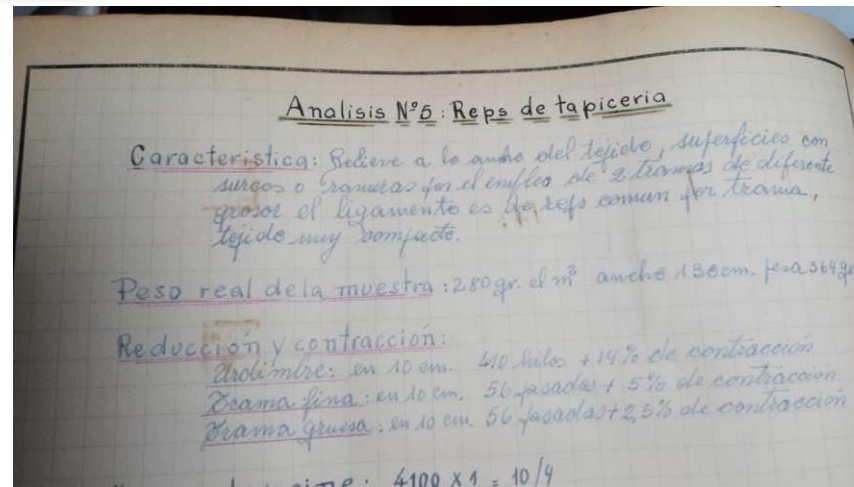 Analisis Nº5: Reps de tapiceria
Caracteristica: Relieve a lo ancho del tejido, superficies con
surcos o ranuras por el empleo de 2 tramas de diferente
grosor el ligamento es de reps comun por trama,
tejido muy compacto.
Peso real de la muestra: 280 gr. el m³ ancho 130 cm. pesa 364 gr
Reducción y contracción:
Urdimbre: en 10 cm. 410 hilos + 14% de contracción
Trama fina: en 10 cm. 56 pasadas + 5% de contracción
Trama gruesa: en 10 cm. 56 pasadas + 2,5% de contracción
4100 x 1 = 10/4